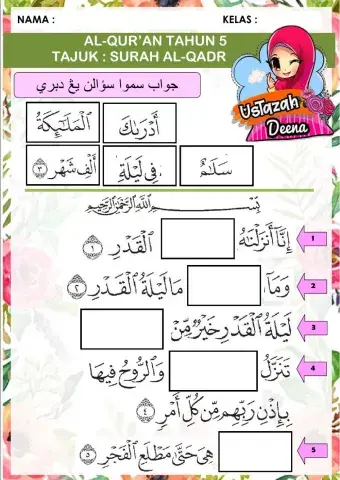 NAMA : KELAS :
AL-QUR'AN TAHUN 5
TAJUK : SURAH AL-QADR
Ustazah
Deena
جواب سموا سؤالن يڠ دبري
أَدْرَىٰكَ ٱلْمَلَٰٓئِكَةُ
سَلَٰمٌ فِى لَيْلَةِ أَلْفِ شَهْرٍ ٣
بِسْمِ ٱللَّهِ ٱلرَّحْمَٰنِ ٱلرَّحِيمِ
إِنَّآ أَنزَلْنَٰهُ ٱلْقَدْرِ ١
1
وَمَآ مَا لَيْلَةُ ٱلْقَدْرِ ٢
2
لَيْلَةُ ٱلْقَدْرِ خَيْرٌ مِّنْ
3
تَنَزَّلُ وَٱلرُّوحُ فِيهَا
4
بِإِذْنِ رَبِّهِم مِّن كُلِّ أَمْرٍ ٤
هِىَ حَتَّىٰ مَطْلَعِ ٱلْفَجْرِ ٥
5